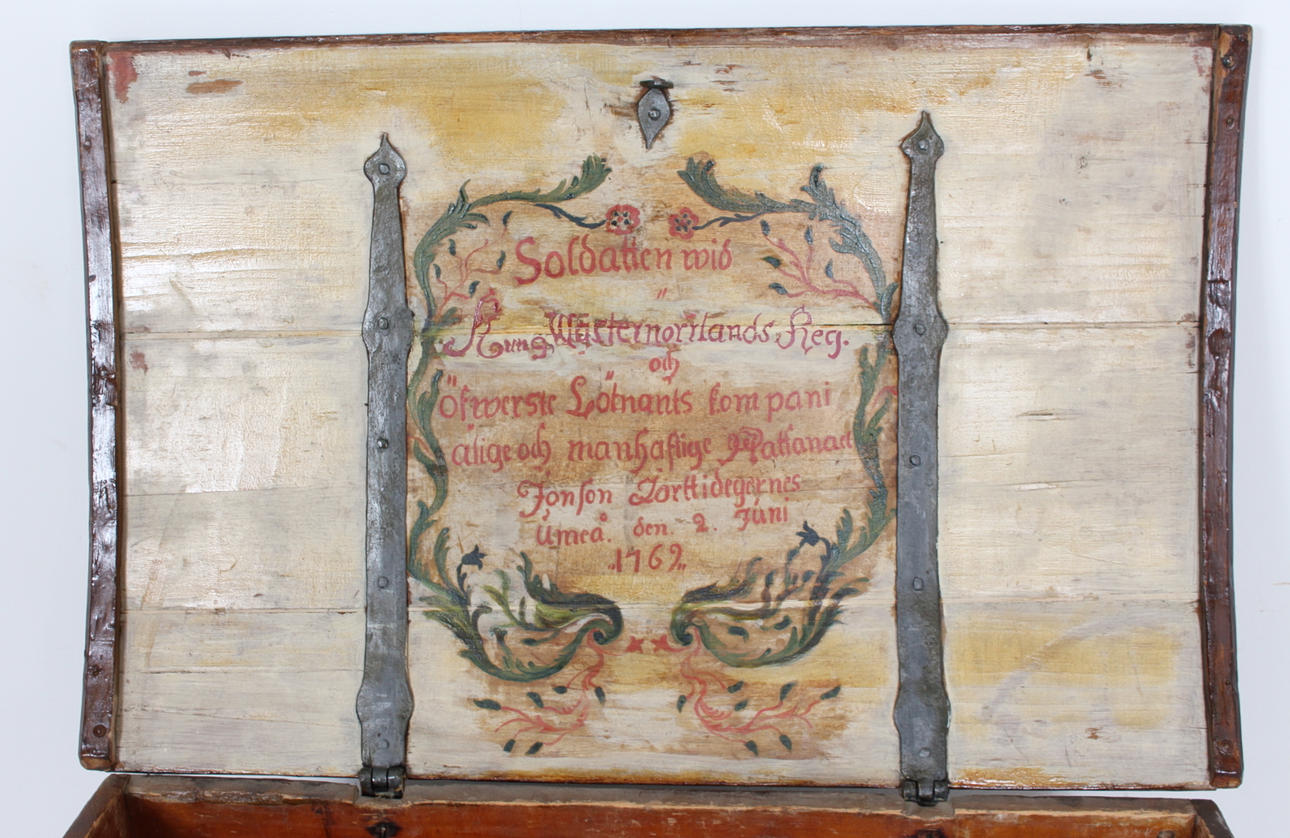 Soldatten wid
"
Kung Wästernorrlands Reg.
och
Öfwerste Lötnants kompani
älige och manhaftige
Jonson
Umeå. den. 2. Juni
„1762„